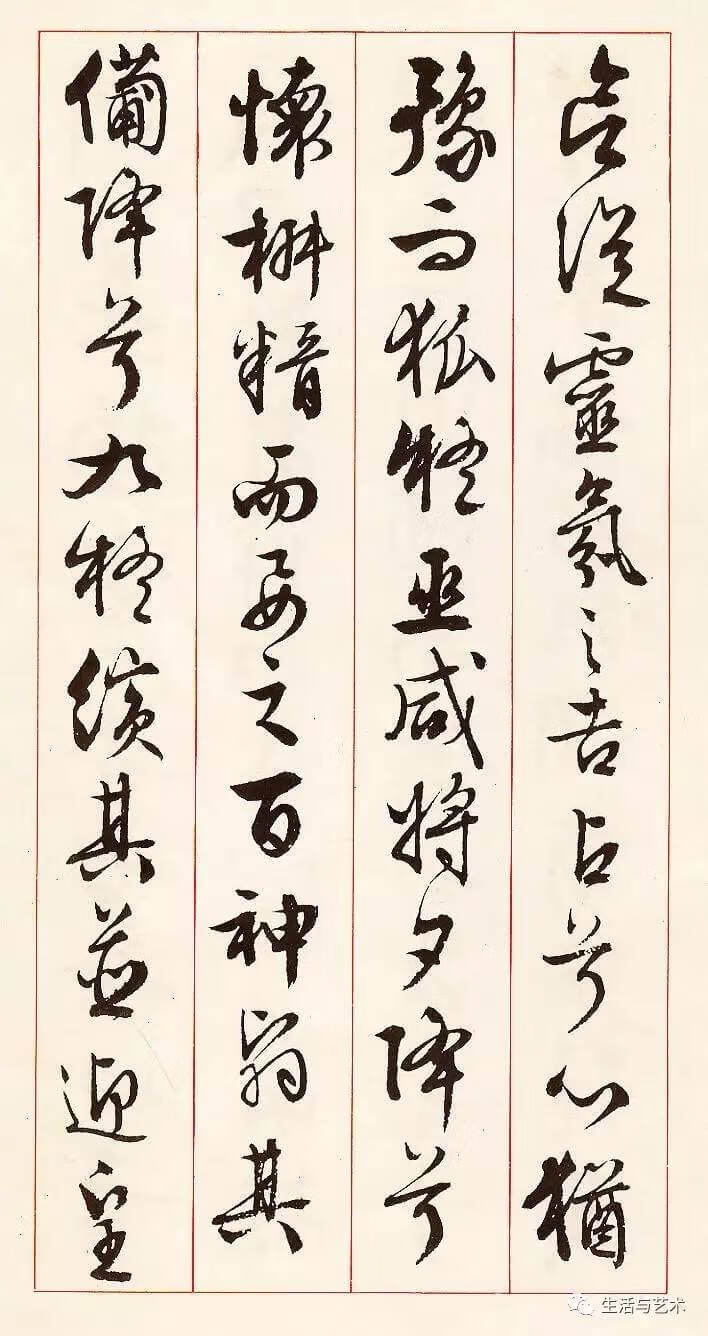 欲從靈氛之吉占兮心猶
豫而狐疑巫咸將夕降兮
懷椒糈而要之百神翳其
備降兮九疑繽其並迎皇
生活与艺术